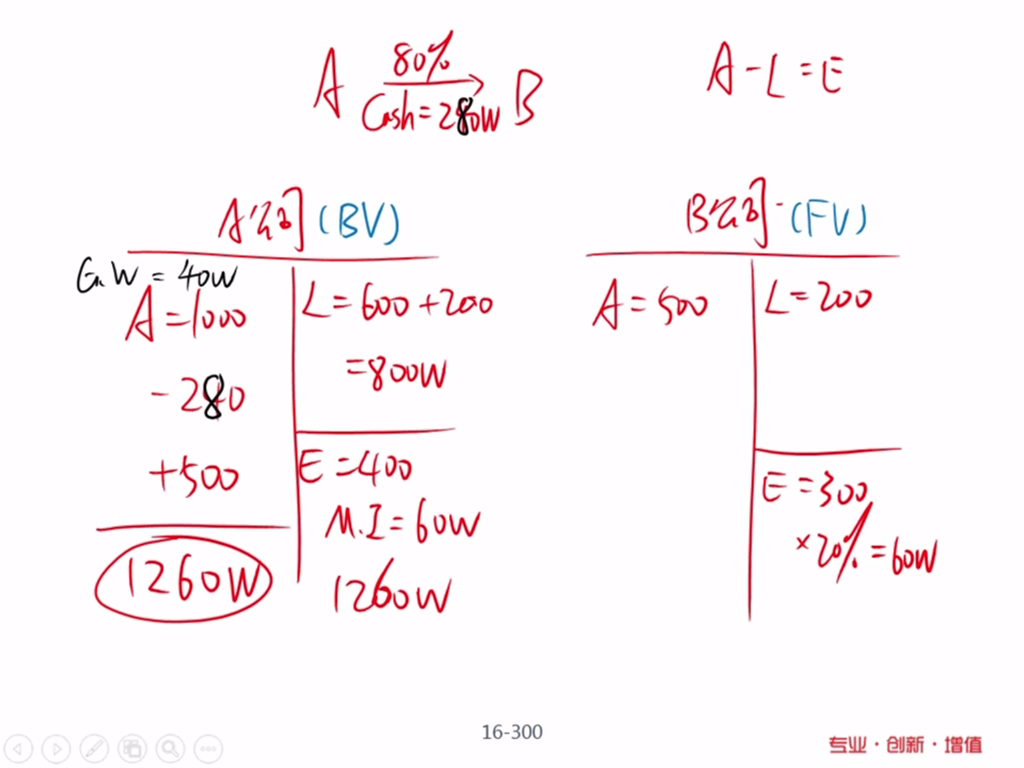 A 80% B
Cash = 280W
A - L = E
A公司 (BV)
G.W = 40W
A = 1000
- 280
+ 500
1260W
L = 600 + 200
= 800W
E = 400
M.I = 60W
1260W
B公司 (FV)
A = 500
L = 200
E = 300
× 20% = 60W
16-300
专业·创新·增值